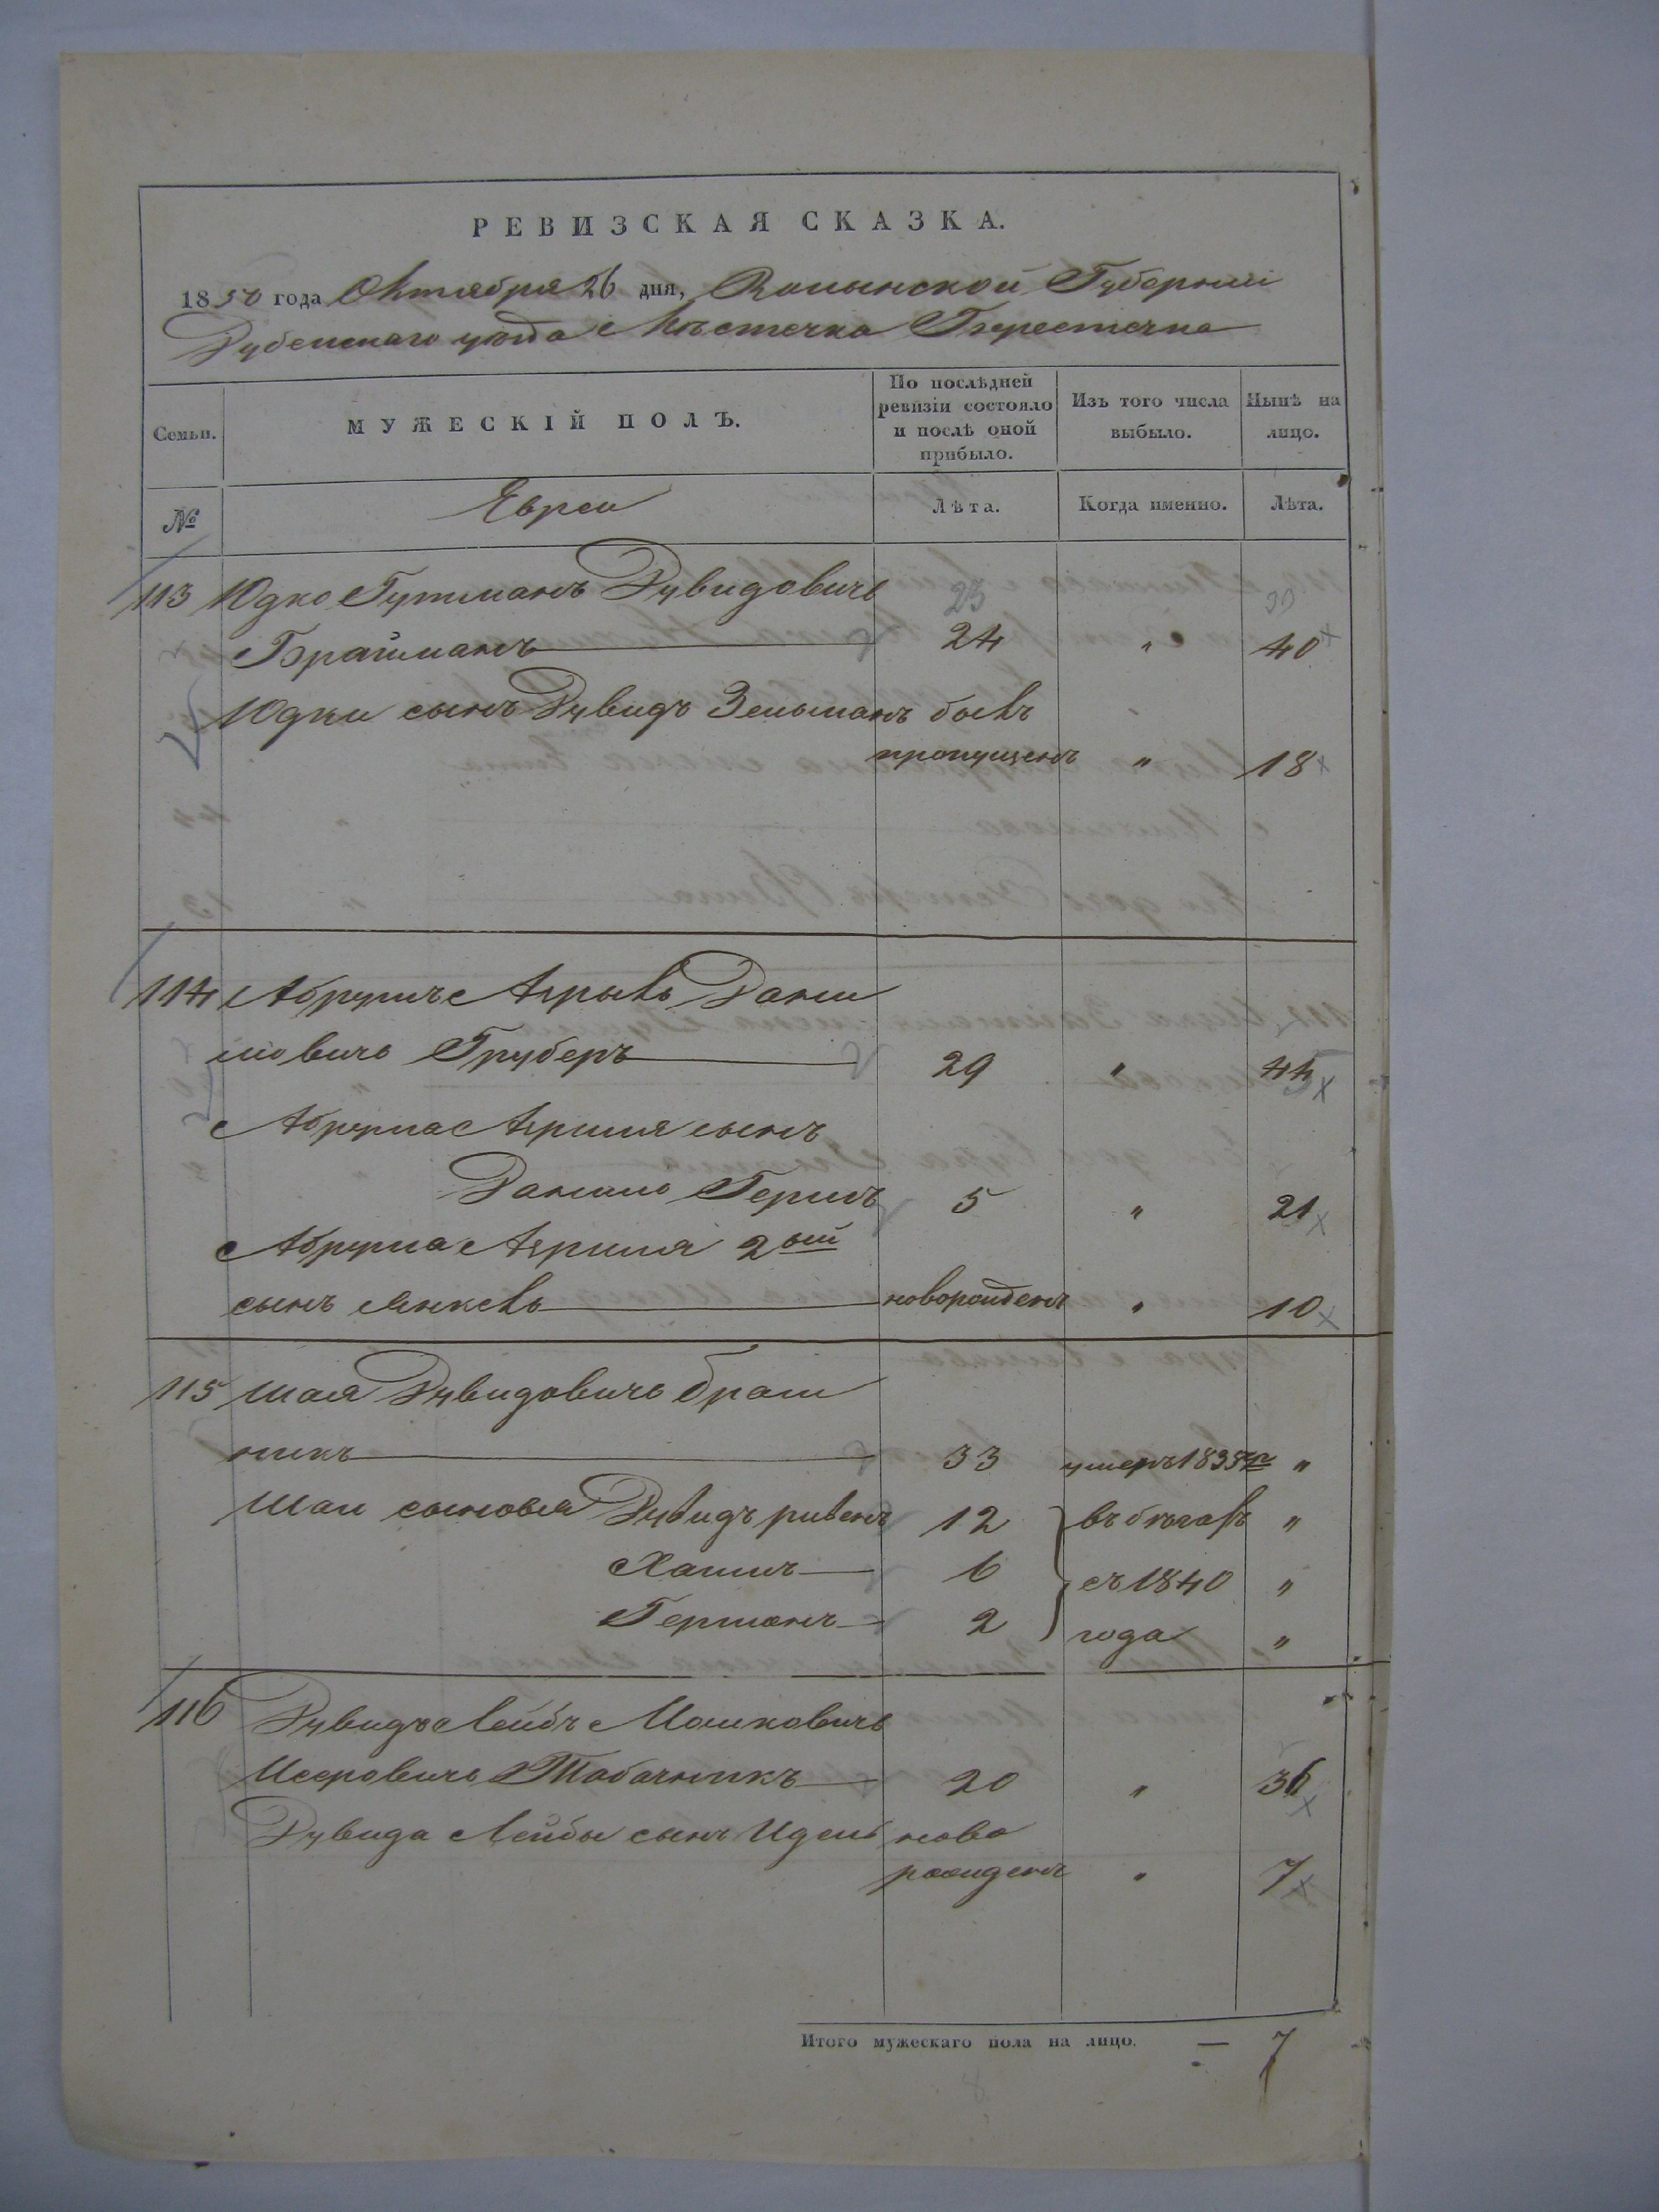 РЕВИЗСКАЯ СКАЗКА.
1850 года Октября 26 дня, Волынской Губерніи
Дубенскаго уѣзда Мѣстечка Берестечка
Семьи.
МУЖЕСКІЙ ПОЛЪ.
По послѣдней ревизіи состояло и послѣ оной прибыло.
Изъ того числа выбыло.
Нынѣ на лицо.
№
Евреи
Лѣта.
Когда именно.
Лѣта.
113 Юдко Гутманъ Дувидовичь
23
Брайманъ 24 " 40
Юдки сынъ Дувидъ Зельманъ былъ
пропущенъ " 18
114 Абрумъ Аврымъ Дани
ловичь Груберъ 29 " 44
Абрума сынъ
Данило Гершъ 5 " 21
Абрума 2ой
сынъ Янкель новорожденъ " 10
115 Шая Дувидовичь Браш
никъ 33 умеръ 1835 "
Шаи сыновья Дувидъ 12 въ бѣгахъ "
Хаимъ 6 съ 1840 "
Германъ 2 года "
116 Дувидъ Лейбъ Мошковичь
Исеровичь Табачникъ 20 " 36
Дувида Лейбы сынъ Идель ново
рожденъ " 7
Итого мужескаго пола на лицо. — 7